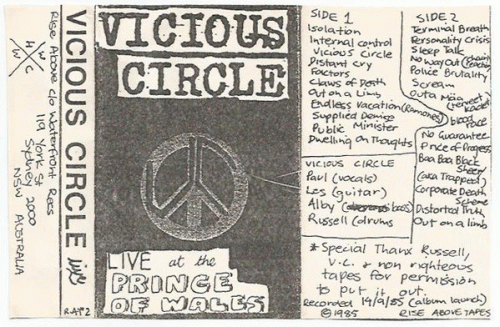 Rise Above c/o Waterfront Recs
119 York St
Sydney 2000
NSW AUSTRALIA
VICIOUS CIRCLE live
R.A.T 2
VICIOUS
CIRCLE
LIVE at the
PRINCE
OF WALES
SIDE 1
Isolation
Internal control
Vicious Circle
Distant cry
Factors
Claws of Death
Out on a Limb
Endless Vacation (Ramones)
Supplied Demise
Public Minister
Dwelling on Thoughts
SIDE 2
Terminal Breath
Personality Crisis
Sleep Talk
No Way Out
Police Brutality
Scream
blood
Race
No Guarantee
Price of Progess
Baa Baa Black
Sheep
(aka Trapped)
Corporate Death
Scheme
Distorted Truth
Out on a limb
VICIOUS CIRCLE
Paul (vocals)
Les (guitar)
Alby (bass)
Russell (drums
* Special Thanx Russell,
V.C. + non righteous
tapes for permission
to put it out.
Recorded 14/9/85 (album launch)
©1985 RISE ABOVE TAPES